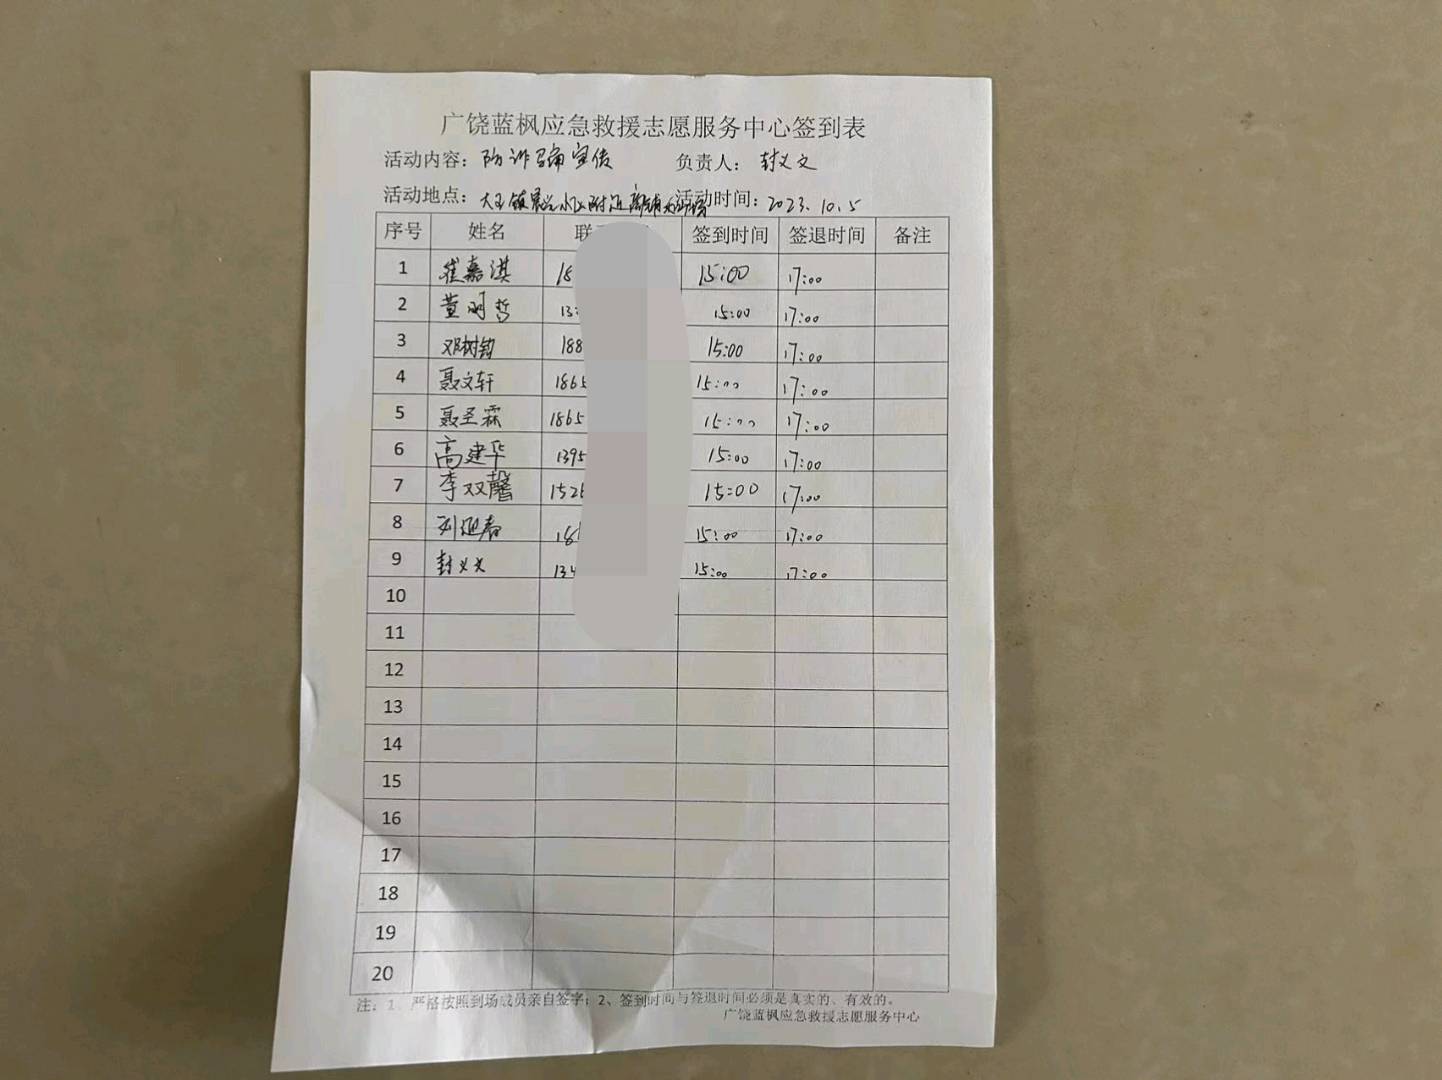 广饶蓝枫应急救援志愿服务中心签到表
活动内容：防诈骗宣传 负责人：封义文
活动地点：大王镇 小区附近商铺 活动时间：2023.10.5
序号 姓名 联 签到时间 签退时间 备注
1 崔嘉淇 18 15:00 17:00
2 董明哲 13 15:00 17:00
3 邓树钧 188 15:00 17:00
4 聂文轩 1865 15:00 17:00
5 聂圣霖 1865 15:00 17:00
6 高建华 1395 15:00 17:00
7 李双馨 152 15:00 17:00
8 刘延春 18 15:00 17:00
9 封义文 134 15:00 17:00
10
11
12
13
14
15
16
17
18
19
20
注：1、严格按照到场成员亲自签字；2、签到时间与签退时间必须是真实的、有效的。
广饶蓝枫应急救援志愿服务中心